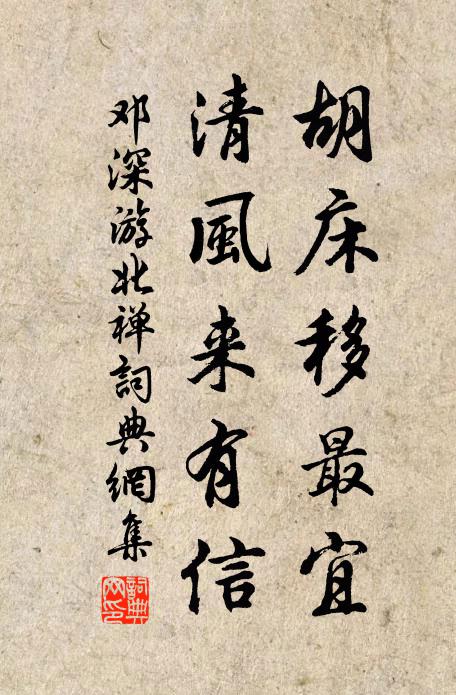 胡床移最宜
清風来有信
邓深游北禅詞典網集
詞典網印